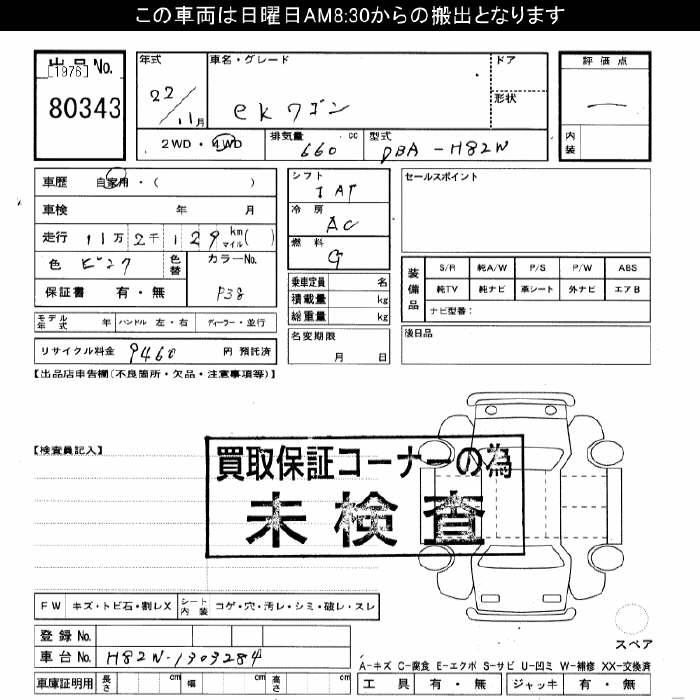 この車両は日曜日AM8:30からの搬出となります
出品No.
[1976]
80343
年式
22/11月
車名・グレード
ekワゴン
ドア
形状
評価点
内装
2WD・4WD
排気量 660 cc
型式 DBA-H82W
車歴 自家用・( )
車検 年 月
走行 11万2千129km マイル( )
色 ピンク
色替
カラーNo. P38
保証書 有・無
シフト IAT
冷房 AC
燃料 G
乗車定員 名
積載量 kg
総重量 kg
セールスポイント
装備品
S/R 純A/W P/S P/W ABS
純TV 純ナビ 革シート 外ナビ エアB
ナビ型番:
モデル年式 年 ハンドル 左・右 ディーラー・並行
名変期限 月 日
後日品
リサイクル料金 9460 円 預託済
【出品店申告欄(不良箇所・欠品・注意事項等)】
【検査員記入】
買取保証コーナーの為
未検査
FW キズ・トビ石・割レX シート内装 コゲ・穴・汚レ・シミ・破レ・スレ
スペア
登録No.
車台No. H82W-1303284
A-キズ C-腐食 E-エクボ S-サビ U-凹ミ W-補修 XX-交換済
車庫証明用 長さ cm 幅 cm 高さ cm
工具 有・無 ジャッキ 有・無